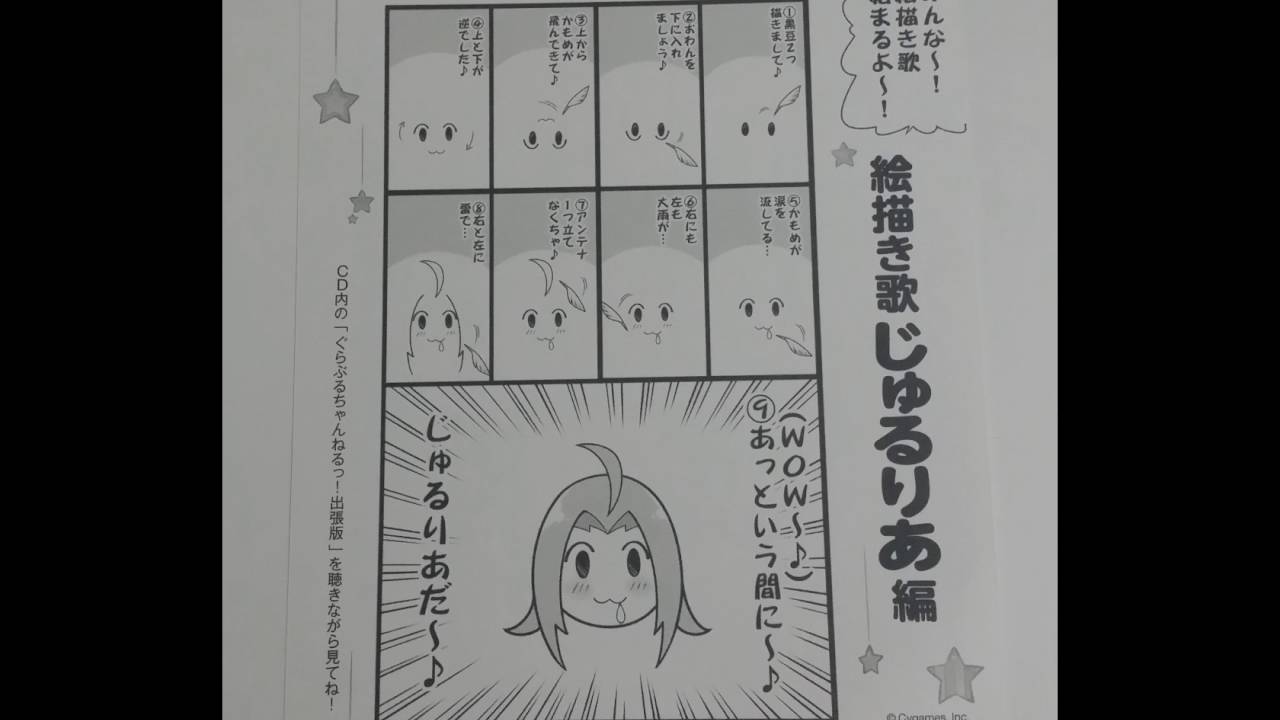 んな～！
絵描き歌
始まるよ～！
絵描き歌じゅるりあ編
①黒豆2つ
描きまして♪
②おわんを
下に入れ
ましょう♪
③上から
かもめが
飛んできて♪
④上と下が
逆でした♪
⑤かもめが
涙を
流してる…
⑥右にも
左も
大雨が…
⑦アンテナ
1つ立て
なくちゃ♪
⑧右と左に
雷で…
（WOW～♪）
⑨あっという間に～♪
じゅるりあだ～♪
CD内の「ぐらぶるちゃんねるっ！出張版」を聴きながら見てね！
© Cygames, Inc.